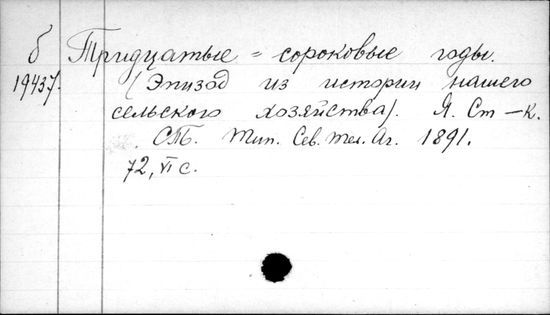 б Тридцатые = сороковые годы.
19437. (Эпизод из истории нашего
сельского хозяйства). Я. Ст—к.
СПб. Тип. Сев. Тел. Аг. 1891.
72, VI с.